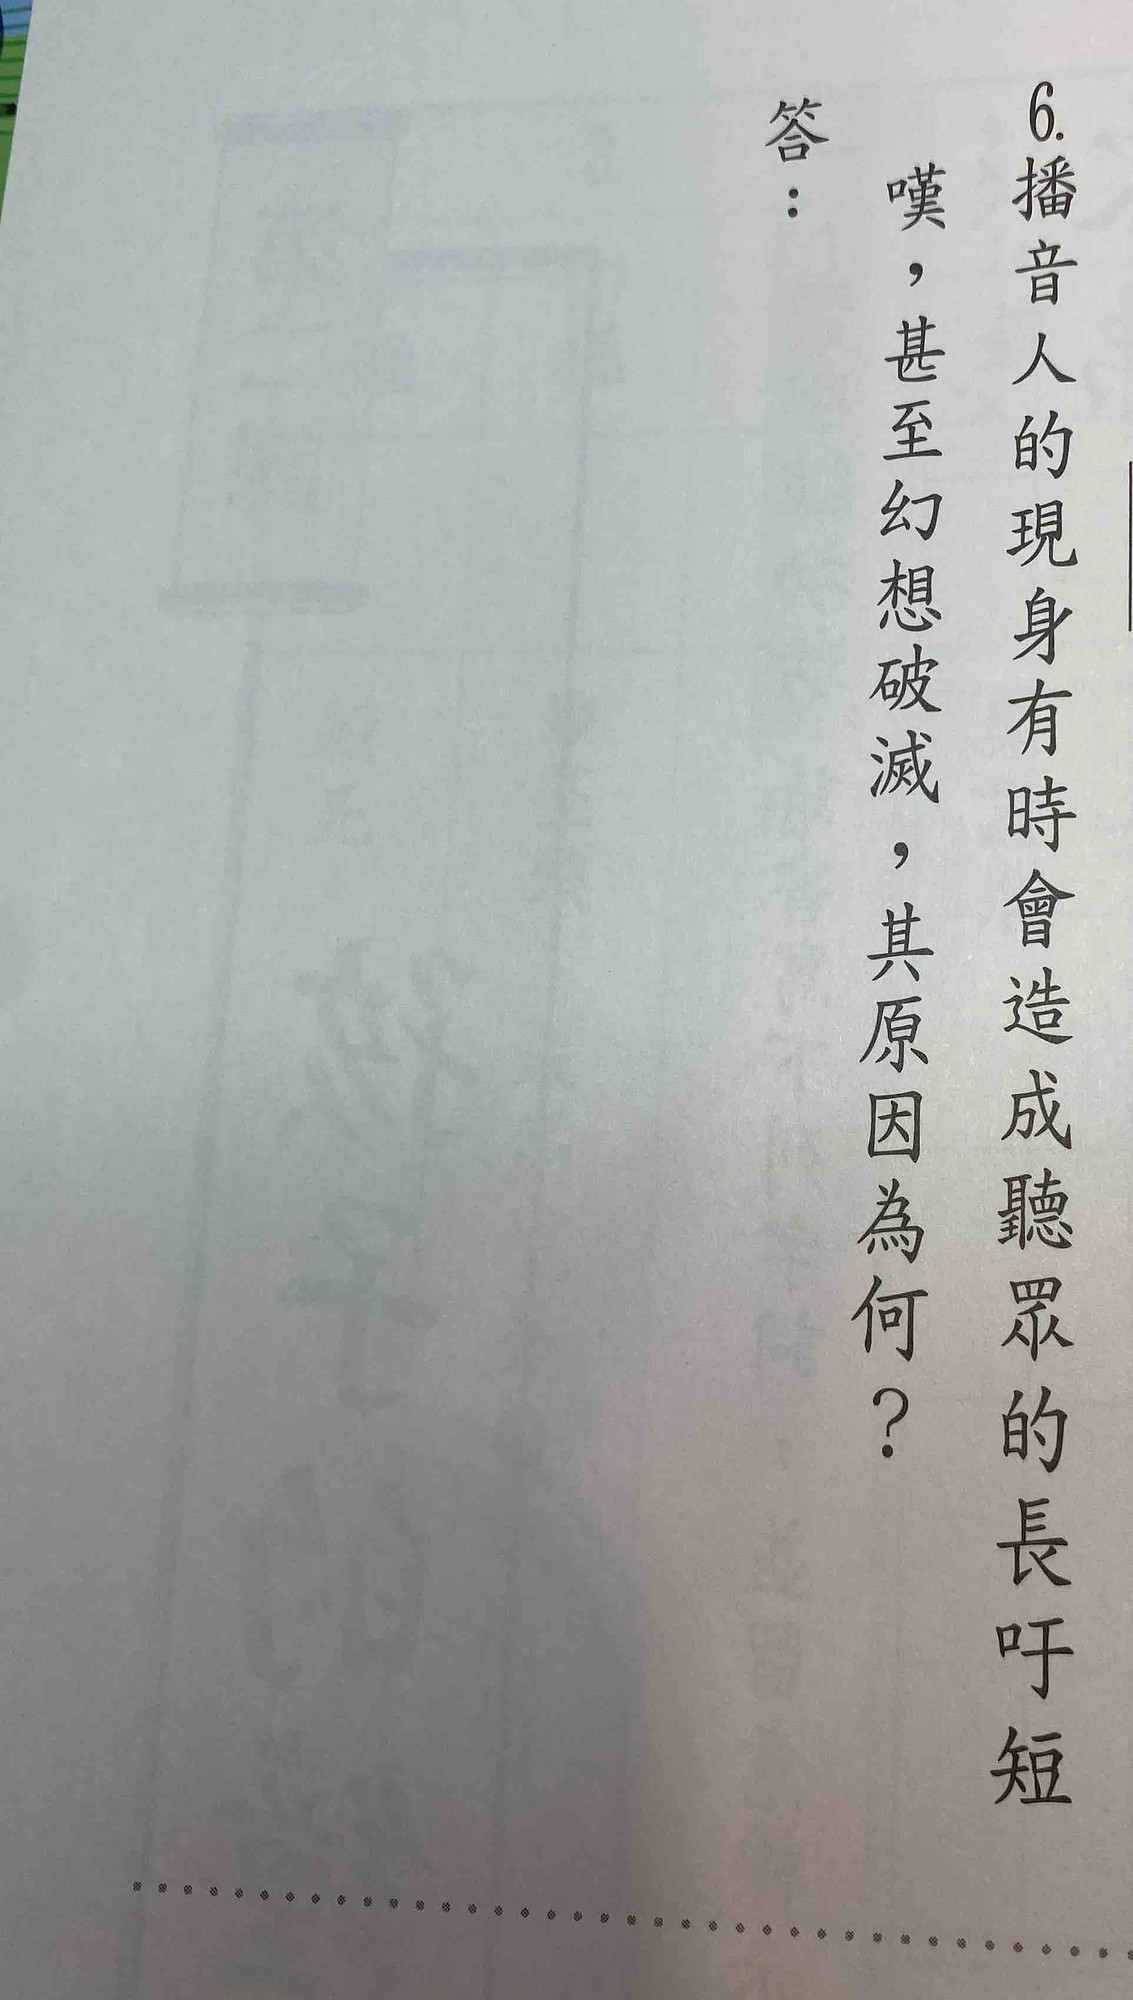 6.播音人的現身有時會造成聽眾的長吁短
嘆，甚至幻想破滅，其原因為何？
答：